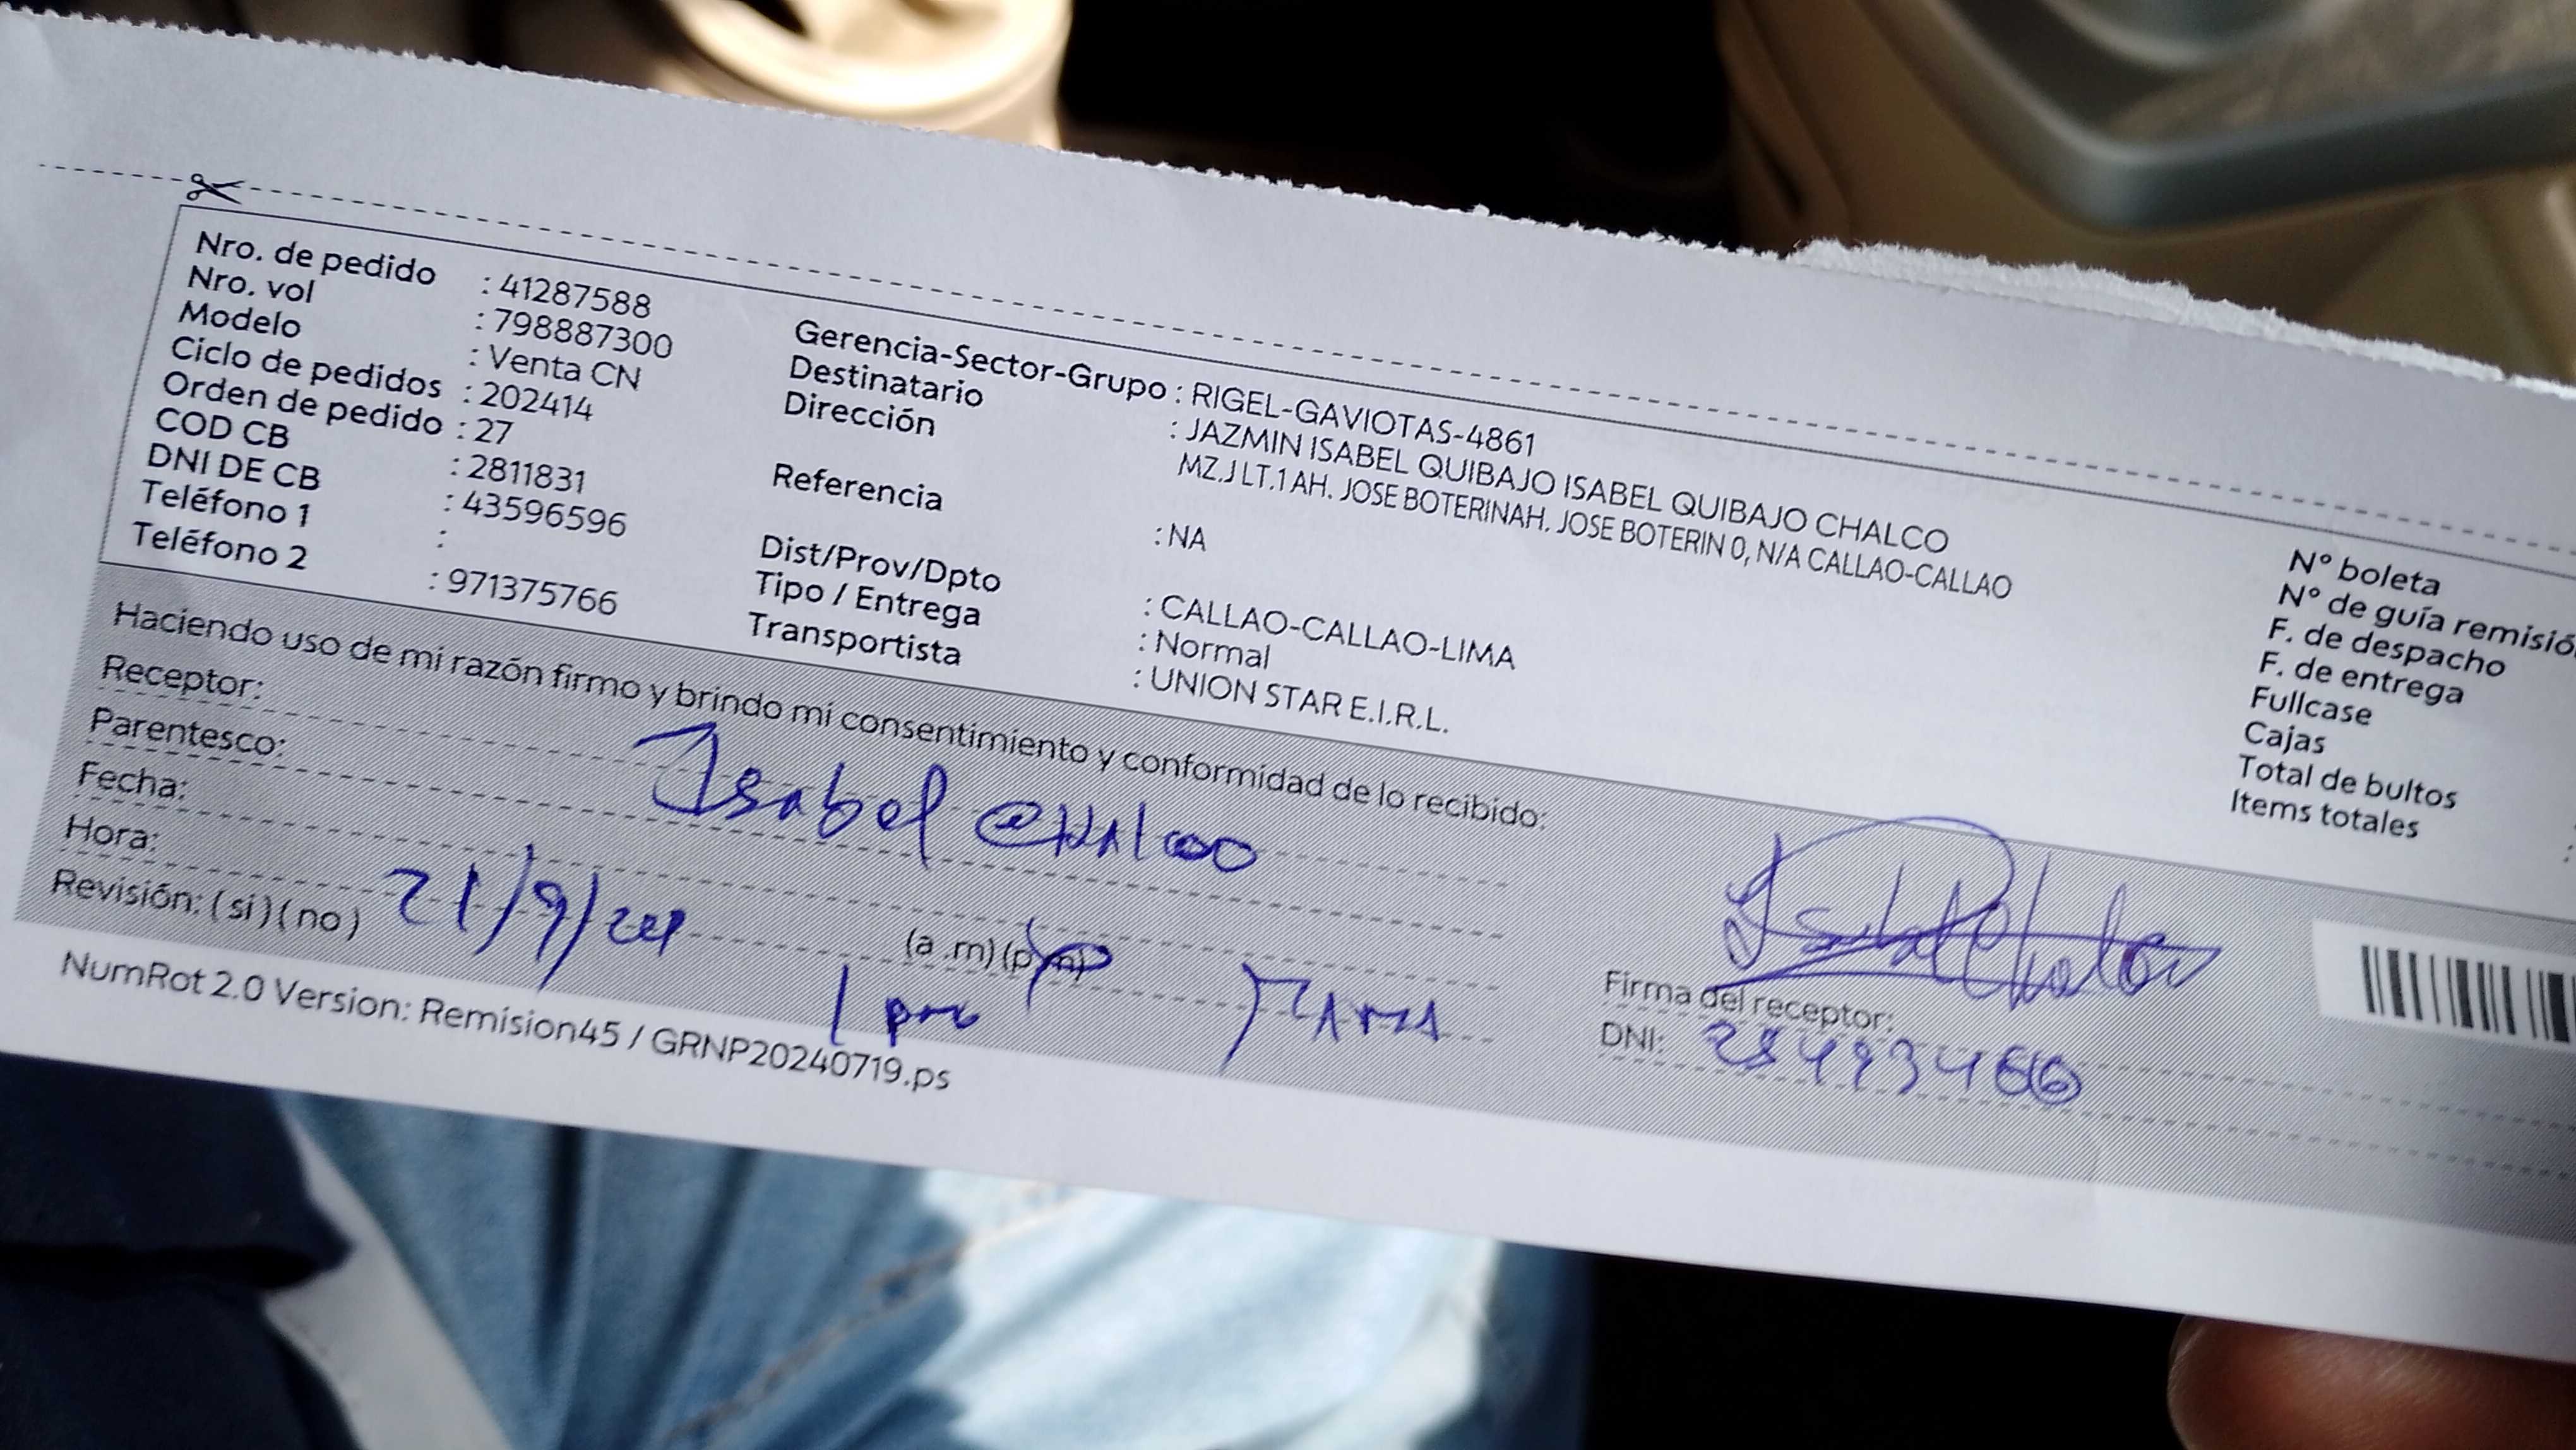 Nro. de pedido : 41287588
Nro. vol : 798887300
Modelo : Venta CN
Ciclo de pedidos : 202414
Orden de pedido : 27
COD CB : 2811831
DNI DE CB : 43596596
Teléfono 1 :
Teléfono 2 : 971375766
Gerencia-Sector-Grupo : RIGEL-GAVIOTAS-4861
Destinatario : JAZMIN ISABEL QUIBAJO ISABEL QUIBAJO CHALCO
Dirección MZ.J LT.1 AH. JOSE BOTERINAH. JOSE BOTERIN 0, N/A CALLAO-CALLAO
Referencia : NA
Dist/Prov/Dpto : CALLAO-CALLAO-LIMA
Tipo / Entrega : Normal
Transportista : UNION STAR E.I.R.L.
N° boleta
N° de guía remisió
F. de despacho
F. de entrega
Fullcase
Cajas
Total de bultos
Items totales :
Haciendo uso de mi razón firmo y brindo mi consentimiento y conformidad de lo recibido:
Receptor: Isabel CHAlco
Parentesco:
Fecha: 21/9/24
Hora: (a .m) (p m)
Revisión: (si) (no)
Firma del receptor:
DNI:
NumRot 2.0 Version: Remision45 / GRNP20240719.ps